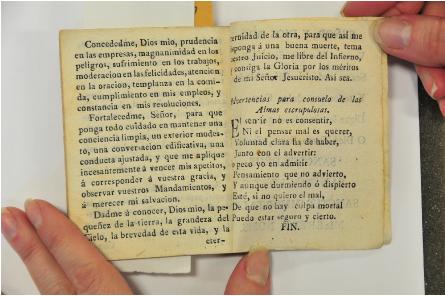 Concededme, Dios mio, prudencia
en las empresas, magnanimidad en los
peligros, sufrimiento en los trabajos,
moderacion en las felicidades, atencion
en la oracion, templanza en la comi-
da, cumplimiento en mis empleos, y
constancia en mis resoluciones.
Fortalecedme, Señor, para que
ponga todo cuidado en mantener una
conciencia limpia, un exterior modes-
to, una conversacion edificativa, una
conducta ajustada, y que me aplique
incesantemente á vencer mis apetitos,
á corresponder á vuestra gracia, y
observar vuestros Mandamientos, y
á merecer mi salvacion.
Dadme á conocer, Dios mio, la pe-
queñez de la tierra, la grandeza del
Cielo, la brevedad de esta vida, y la
eter-
ernidad de la otra, para que así me
isponga á una buena muerte, tema
uestro Juicio, me libre del Infierno,
y consiga la Gloria por los méritos
de mi Señor Jesucristo. Asi sea.
Advertencias para consuelo de las
Almas escrupulosas.
El sentir no es consentir,
Ni el pensar mal es querer,
Voluntad clara ha de haber,
Junto con el advertir:
peco yo en admitir
Pensamiento que no advierto,
Y aunque durmiendo ó dispierto
Esté, si no quiero el mal,
De que no hay culpa mortal
Puedo estar seguro y cierto.
FIN.